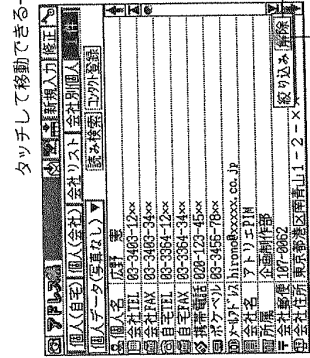 タッチして移動できる
アドレス 新規入力 修正
個人(自宅) 個人(会社) 会社リスト 会社別個人
個人データ(写真なし)▼ 読み検索 コンタクト登録
個人名 広野 憲
会社TEL 03-3403-12××
会社FAX 03-3403-34××
自宅TEL 03-3364-12××
自宅FAX 03-3364-34××
携帯電話 020-123-45××
ポケベル 03-3456-78××
メールアドレス hirono@xxxxx.co.jp
会社名 アトリエPIM
所属 企画制作部
〒会社郵便 107-0062
会社住所 東京都港区南青山1-2-×
絞り込み 解除